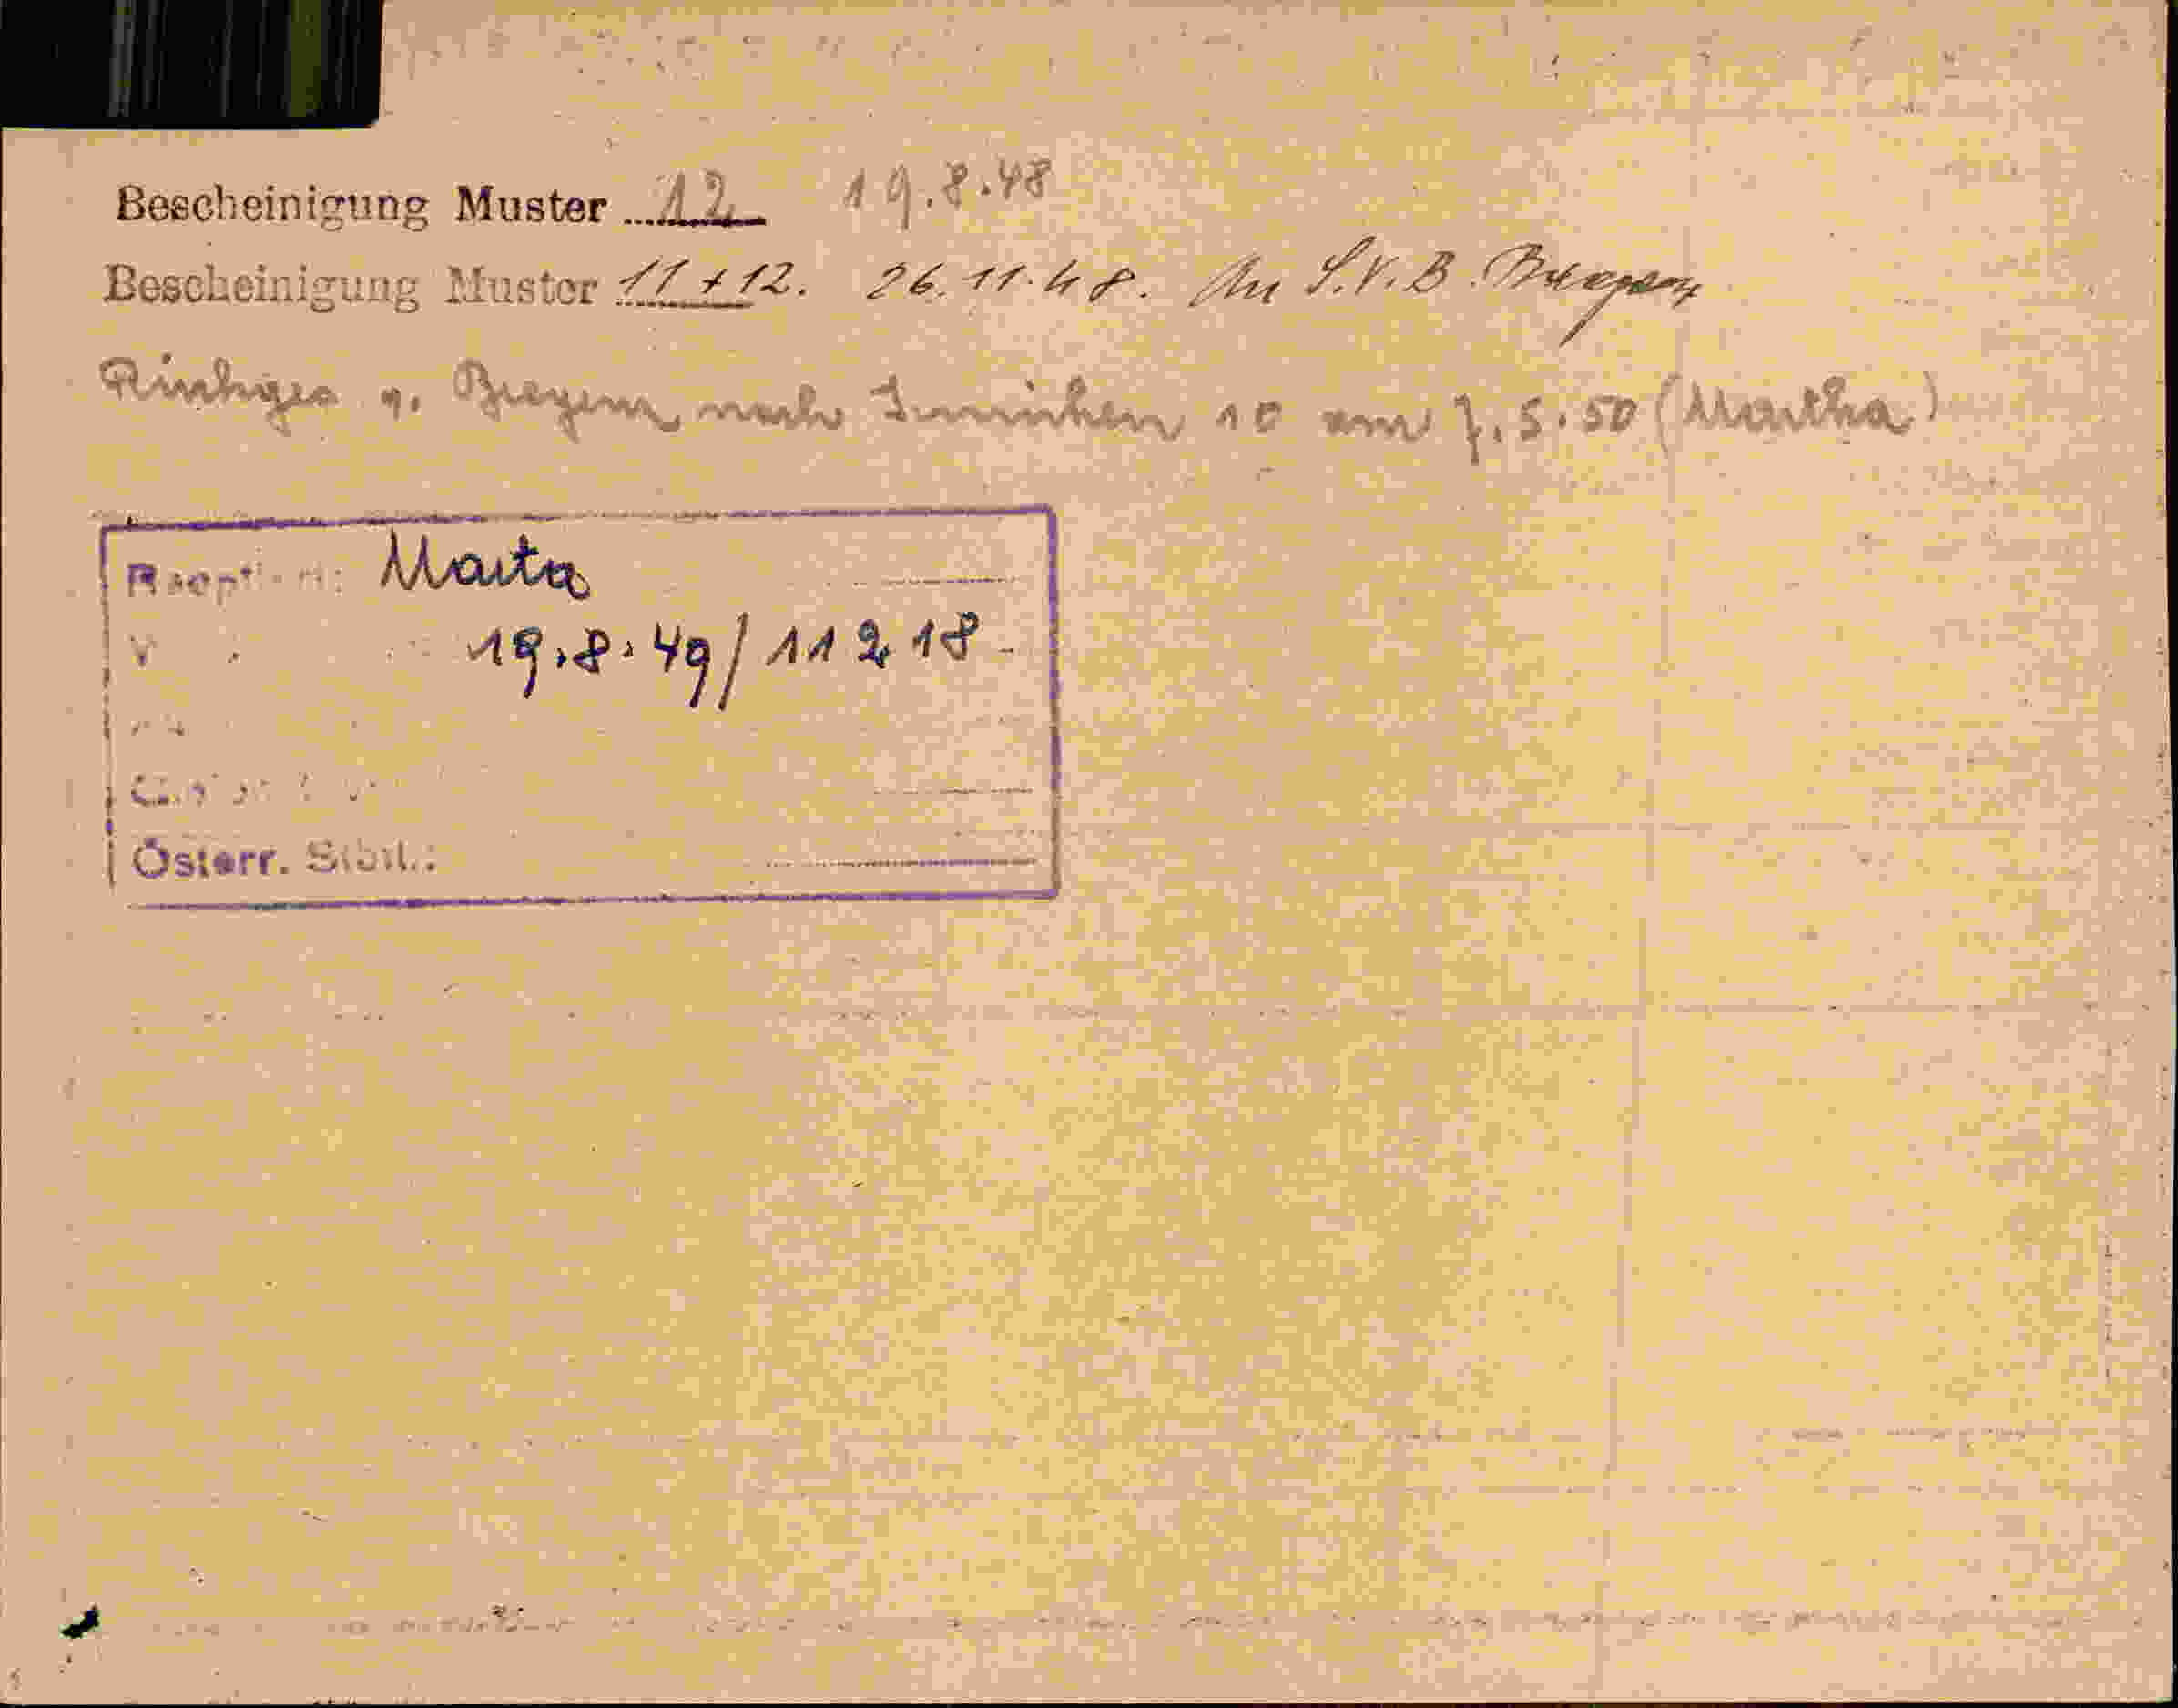 Bescheinigung Muster 12 19.8.48
Bescheinigung Muster 11 + 12. 26.11.48. An S.V.B. Bregenz
v. Bregenz nach Innichen 10 am 7.5.50 (Martha)
Marta
19.8.49/11218
Österr.